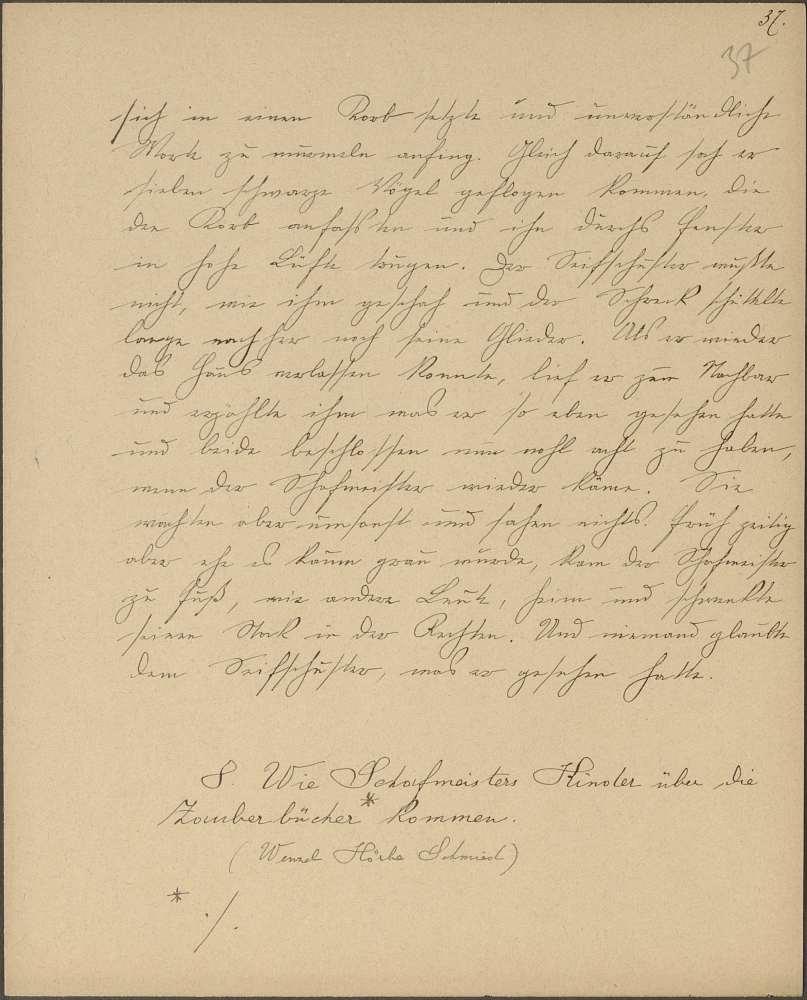 37.
37
sich in einen Korb setzte und unverständliche
Worte zu murmeln anfing. Gleich darauf sah er
sieben schwarze Vögel geflogen kommen, die
den Korb anfassten und ihn durchs Fenster
in hohe Lüfte trugen. Der Seifschuster wußte
nicht, wie ihm geschah und der Schreck schüttelte
lange nachher noch seine Glieder. Als er wieder
das Haus verlassen konnte, lief er zum Nachbar
und erzählte ihm was er so eben gesehen hatte
und beide beschlossen nun wohl acht zu haben,
wenn der Schafmeister wieder käme. Sie
wachten aber umsonst und sahen nichts. Früh zeitig
aber ehe es kaum grau wurde, kam der Schafmeister
zu Fuß, wie andere Leute, heim und schwenkte
seinen Stock in der Rechten. Und niemand glaubte
dem Seifschuster, was er gesehen hatte.
8. Wie Schafmeisters Kinder über die
Zauberbücher * kommen.
(Wenzel Hörbe Schmied)
* ./.